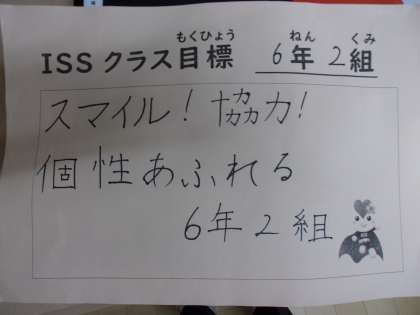 もくひょう ねん くみ
ISS クラス目標 6年 2組
スマイル！協力！
個性あふれる
6年2組